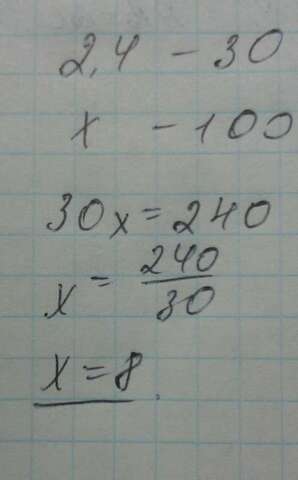 2,4 - 30
x - 100
30x = 240
x = 240/30
x = 8.